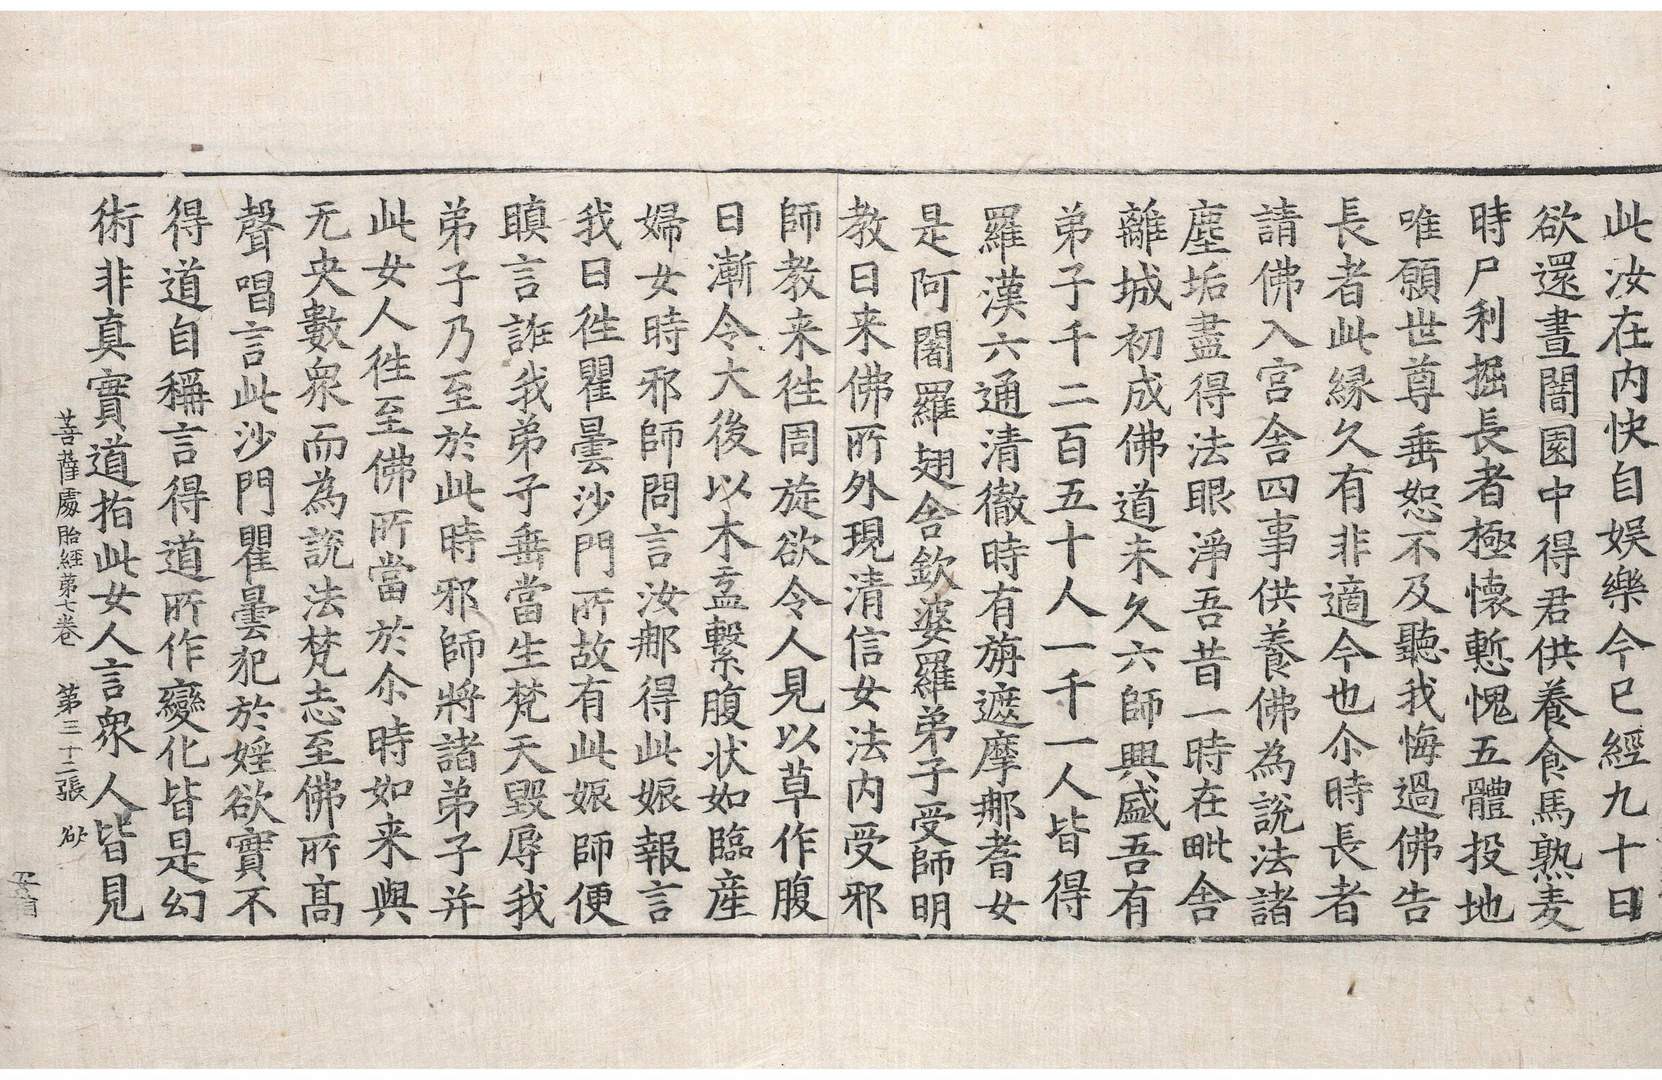 此汝在内快自娱樂今已經九十日
欲還晝闇園中得君供養食馬熟麦
時尸利掘長者極懐慙愧五體投地
唯願世尊垂恕不及聽我悔過佛告
長者此縁久有非適今也尒時長者
請佛入宫舎四事供養佛為説法諸
塵垢盡得法眼淨吾昔一時在毗舎
離城初成佛道未久六師興盛吾有
弟子千二百五十人一千一人皆得
羅漢六通清徹時有旃遮摩那耆女
是阿闍羅翅舎欽婆羅弟子受師明
教日来佛所外現清信女法内受邪
師教来徃周旋欲令人見以草作腹
日漸令大後以木盂繫腹状如臨産
婦女時邪師問言汝那得此娠報言
我日徃瞿曇沙門所故有此娠師便
瞋言誰我弟子垂當生梵天毀辱我
弟子乃至於此時邪師將諸弟子并
此女人徃至佛所當於尒時如来與
无央數衆而為説法梵志至佛所髙
聲唱言此沙門瞿曇犯於婬欲實不
得道自稱言得道所作變化皆是幻
術非真實道指此女人言衆人皆見
菩薩處胎經第七卷 第三十二張 欲